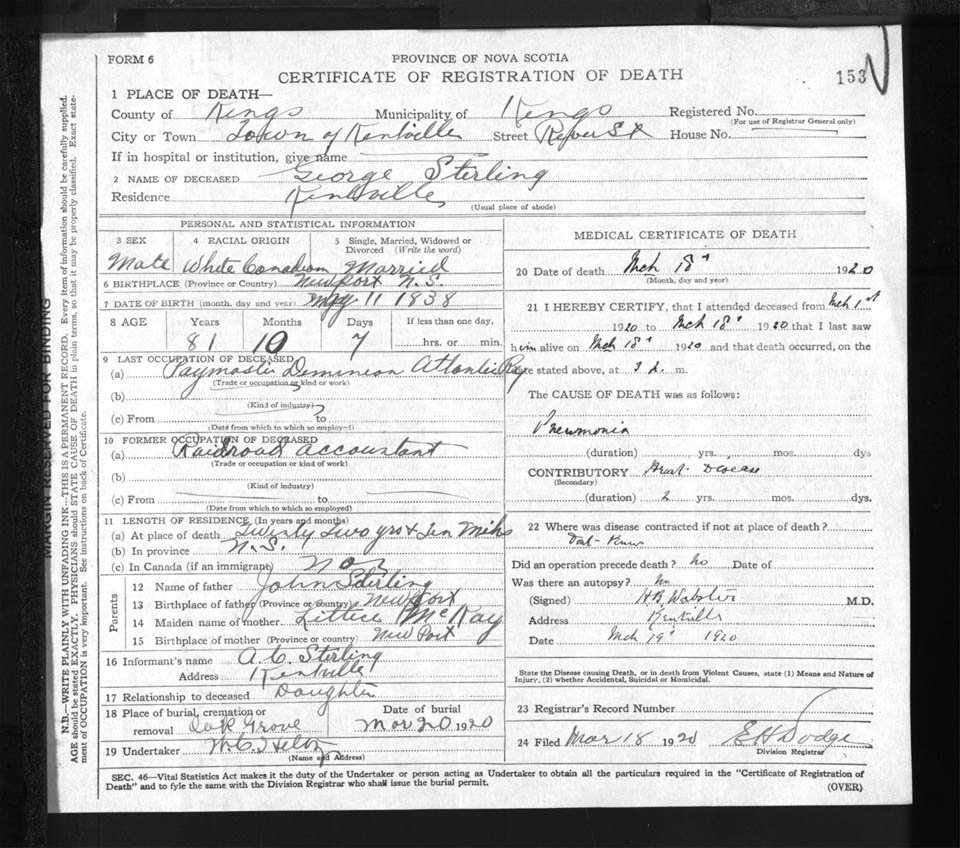 FORM 6
PROVINCE OF NOVA SCOTIA
CERTIFICATE OF REGISTRATION OF DEATH
153
1 PLACE OF DEATH—
County of Kings Municipality of Kings Registered No.
(For use of Registrar General only)
City or Town Town of Kentville Street River St House No.
If in hospital or institution, give name
2 NAME OF DECEASED George Sterling
Residence Kentville
(Usual place of abode)
PERSONAL AND STATISTICAL INFORMATION
3 SEX 4 RACIAL ORIGIN 5 Single, Married, Widowed or
Divorced (Write the word)
Male White Canadian Married
6 BIRTHPLACE (Province or Country) Newport N.S.
7 DATE OF BIRTH (month, day and year) May 11 1838
8 AGE Years Months Days If less than one day,
81 10 7 hrs. or min.
9 LAST OCCUPATION OF DECEASED
(a) Paymaster Dominion Atlantic Ry
(Trade or occupation or kind or work)
(b)
(Kind of industry)
(c) From to
(Date from which to which so employed)
10 FORMER OCCUPATION OF DECEASED
(a) Railroad accountant
(Trade or occupation or kind of work)
(b)
(Kind of industry)
(c) From to
(Date from which to which so employed)
11 LENGTH OF RESIDENCE (In years and months)
(a) At place of death Twenty Two yrs & Ten Mths
(b) In province N.S.
(c) In Canada (if an immigrant)
Parents
12 Name of father John Sterling
13 Birthplace of father (Province or country) Newport
14 Maiden name of mother Lettice McKay
15 Birthplace of mother (Province or country) New Port
16 Informant's name A.C. Sterling
Address Kentville
17 Relationship to deceased Daughter
18 Place of burial, cremation or Date of burial
removal Oak Grove Mar 20 1920
19 Undertaker
(Name and Address)
MEDICAL CERTIFICATE OF DEATH
20 Date of death Mch 18th 1920
(Month, day and year)
21 I HEREBY CERTIFY, that I attended deceased from Mch 1st
1920 to Mch 18th 1920 that I last saw
him alive on Mch 18th 1920 and that death occurred, on the
date stated above, at 3 m.
The CAUSE OF DEATH was as follows:
Pneumonia
(duration) yrs. mos. dys
CONTRIBUTORY Heart Disease
(Secondary)
(duration) 2 yrs. mos. dys.
22 Where was disease contracted if not at place of death?
Did an operation precede death? No Date of
Was there an autopsy? No
(Signed) H B Webster M.D.
Address Kentville
Date Mch 19th 1920
State the Disease causing Death, or in death from Violent Causes, state (1) Means and Nature of
Injury, (2) whether Accidental, Suicidal or Homicidal.
23 Registrar's Record Number
24 Filed Mar 18 1920 E H Dodge
Division Registrar
SEC. 46—Vital Statistics Act makes it the duty of the Undertaker or person acting as Undertaker to obtain all the particulars required in the "Certificate of Registration of
Death" and to fyle the same with the Division Registrar who shall issue the burial permit.
(OVER)
MARGIN RESERVED FOR BINDING
N.B.—WRITE PLAINLY WITH UNFADING INK—THIS IS A PERMANENT RECORD. Every item of information should be carefully supplied.
AGE should be stated EXACTLY. PHYSICIANS should STATE CAUSE OF DEATH in plain terms, so that it may be properly classified. Exact state-
ment of OCCUPATION is very important. See instructions on back of Certificate.